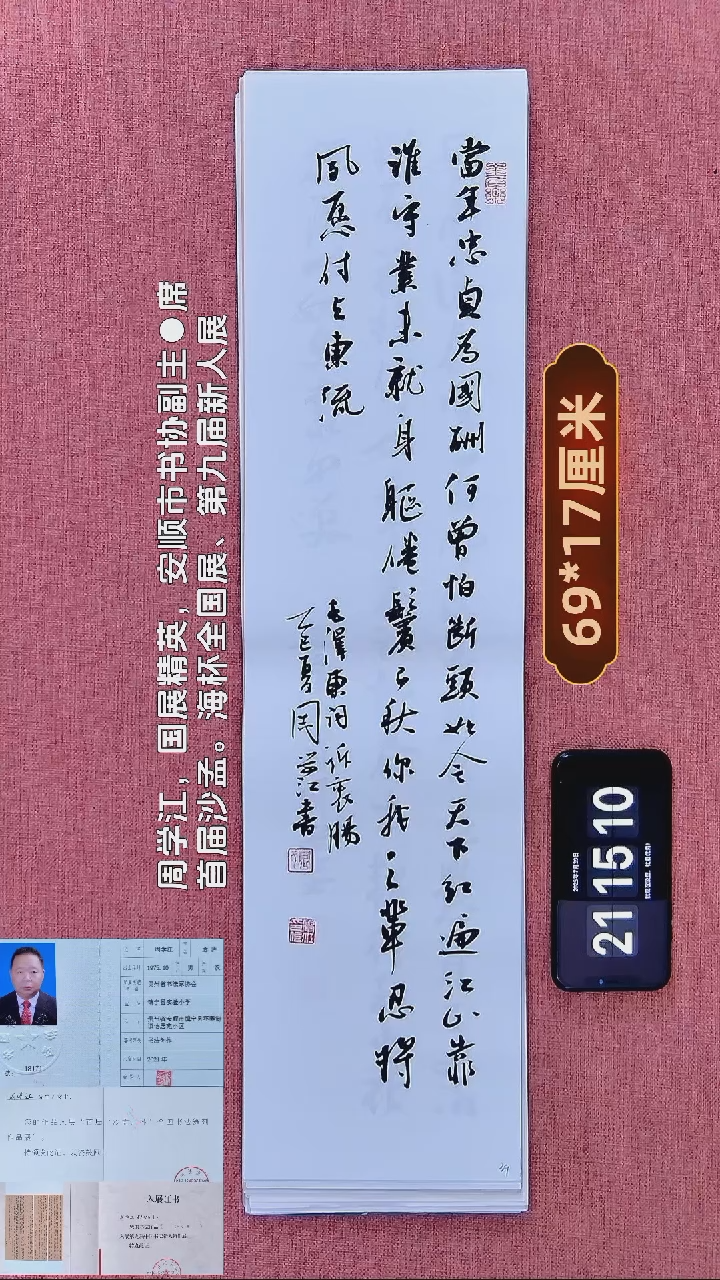 當年忠貞為國酬何曾怕斷頭如今天下紅遍江山靠
誰守業未就身軀倦鬢已秋你我之輩忍將
夙愿付与東流
毛澤東词訴衷腸
乙巳夏周学江書
周学江，国展精英，安顺市书协副主●席
首届沙孟。海杯全国展、第九届新人展
69*17厘米
21 15 10
入展证书